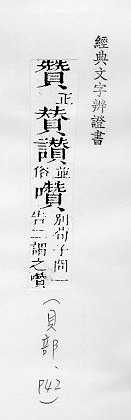 經典文字辨證書
贊正賛讚並俗囋別荀子問一
告二謂之囋
(貝部、P42)